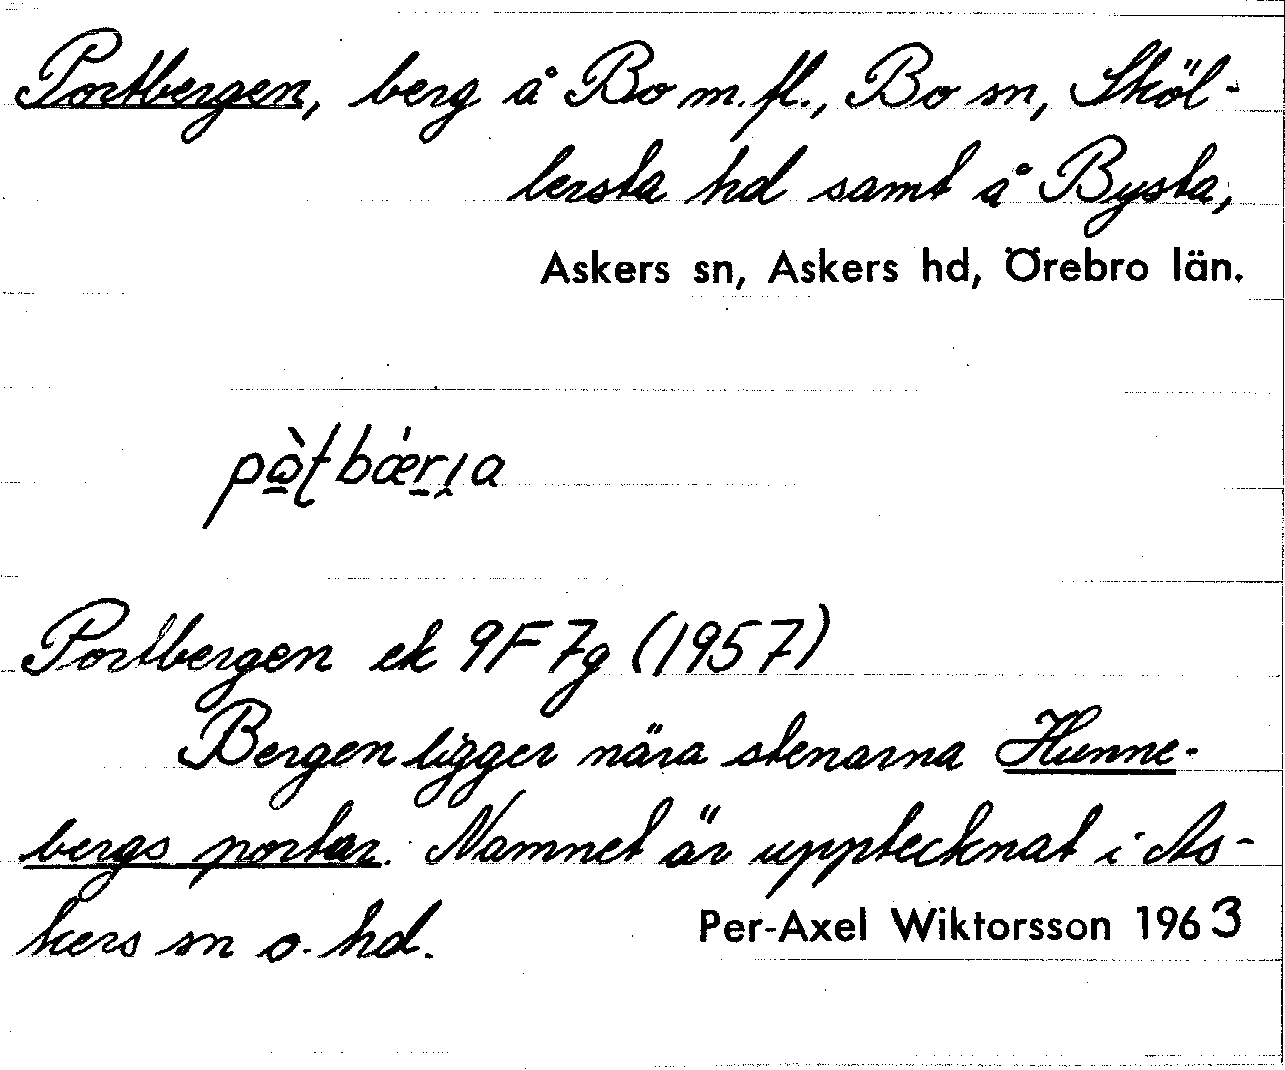 Portbergen, berg å Bo m.fl., Bo sn, Sköl-
lersta hd samt å Bysta,
Askers sn, Askers hd, Örebro län.
pòtbærıa
Portbergen ek 9F 7g (1957)
Bergen ligger nära stenarna Hunne-
bergs portar. Namnet är upptecknat i As-
kers sn o. hd.
Per-Axel Wiktorsson 1963